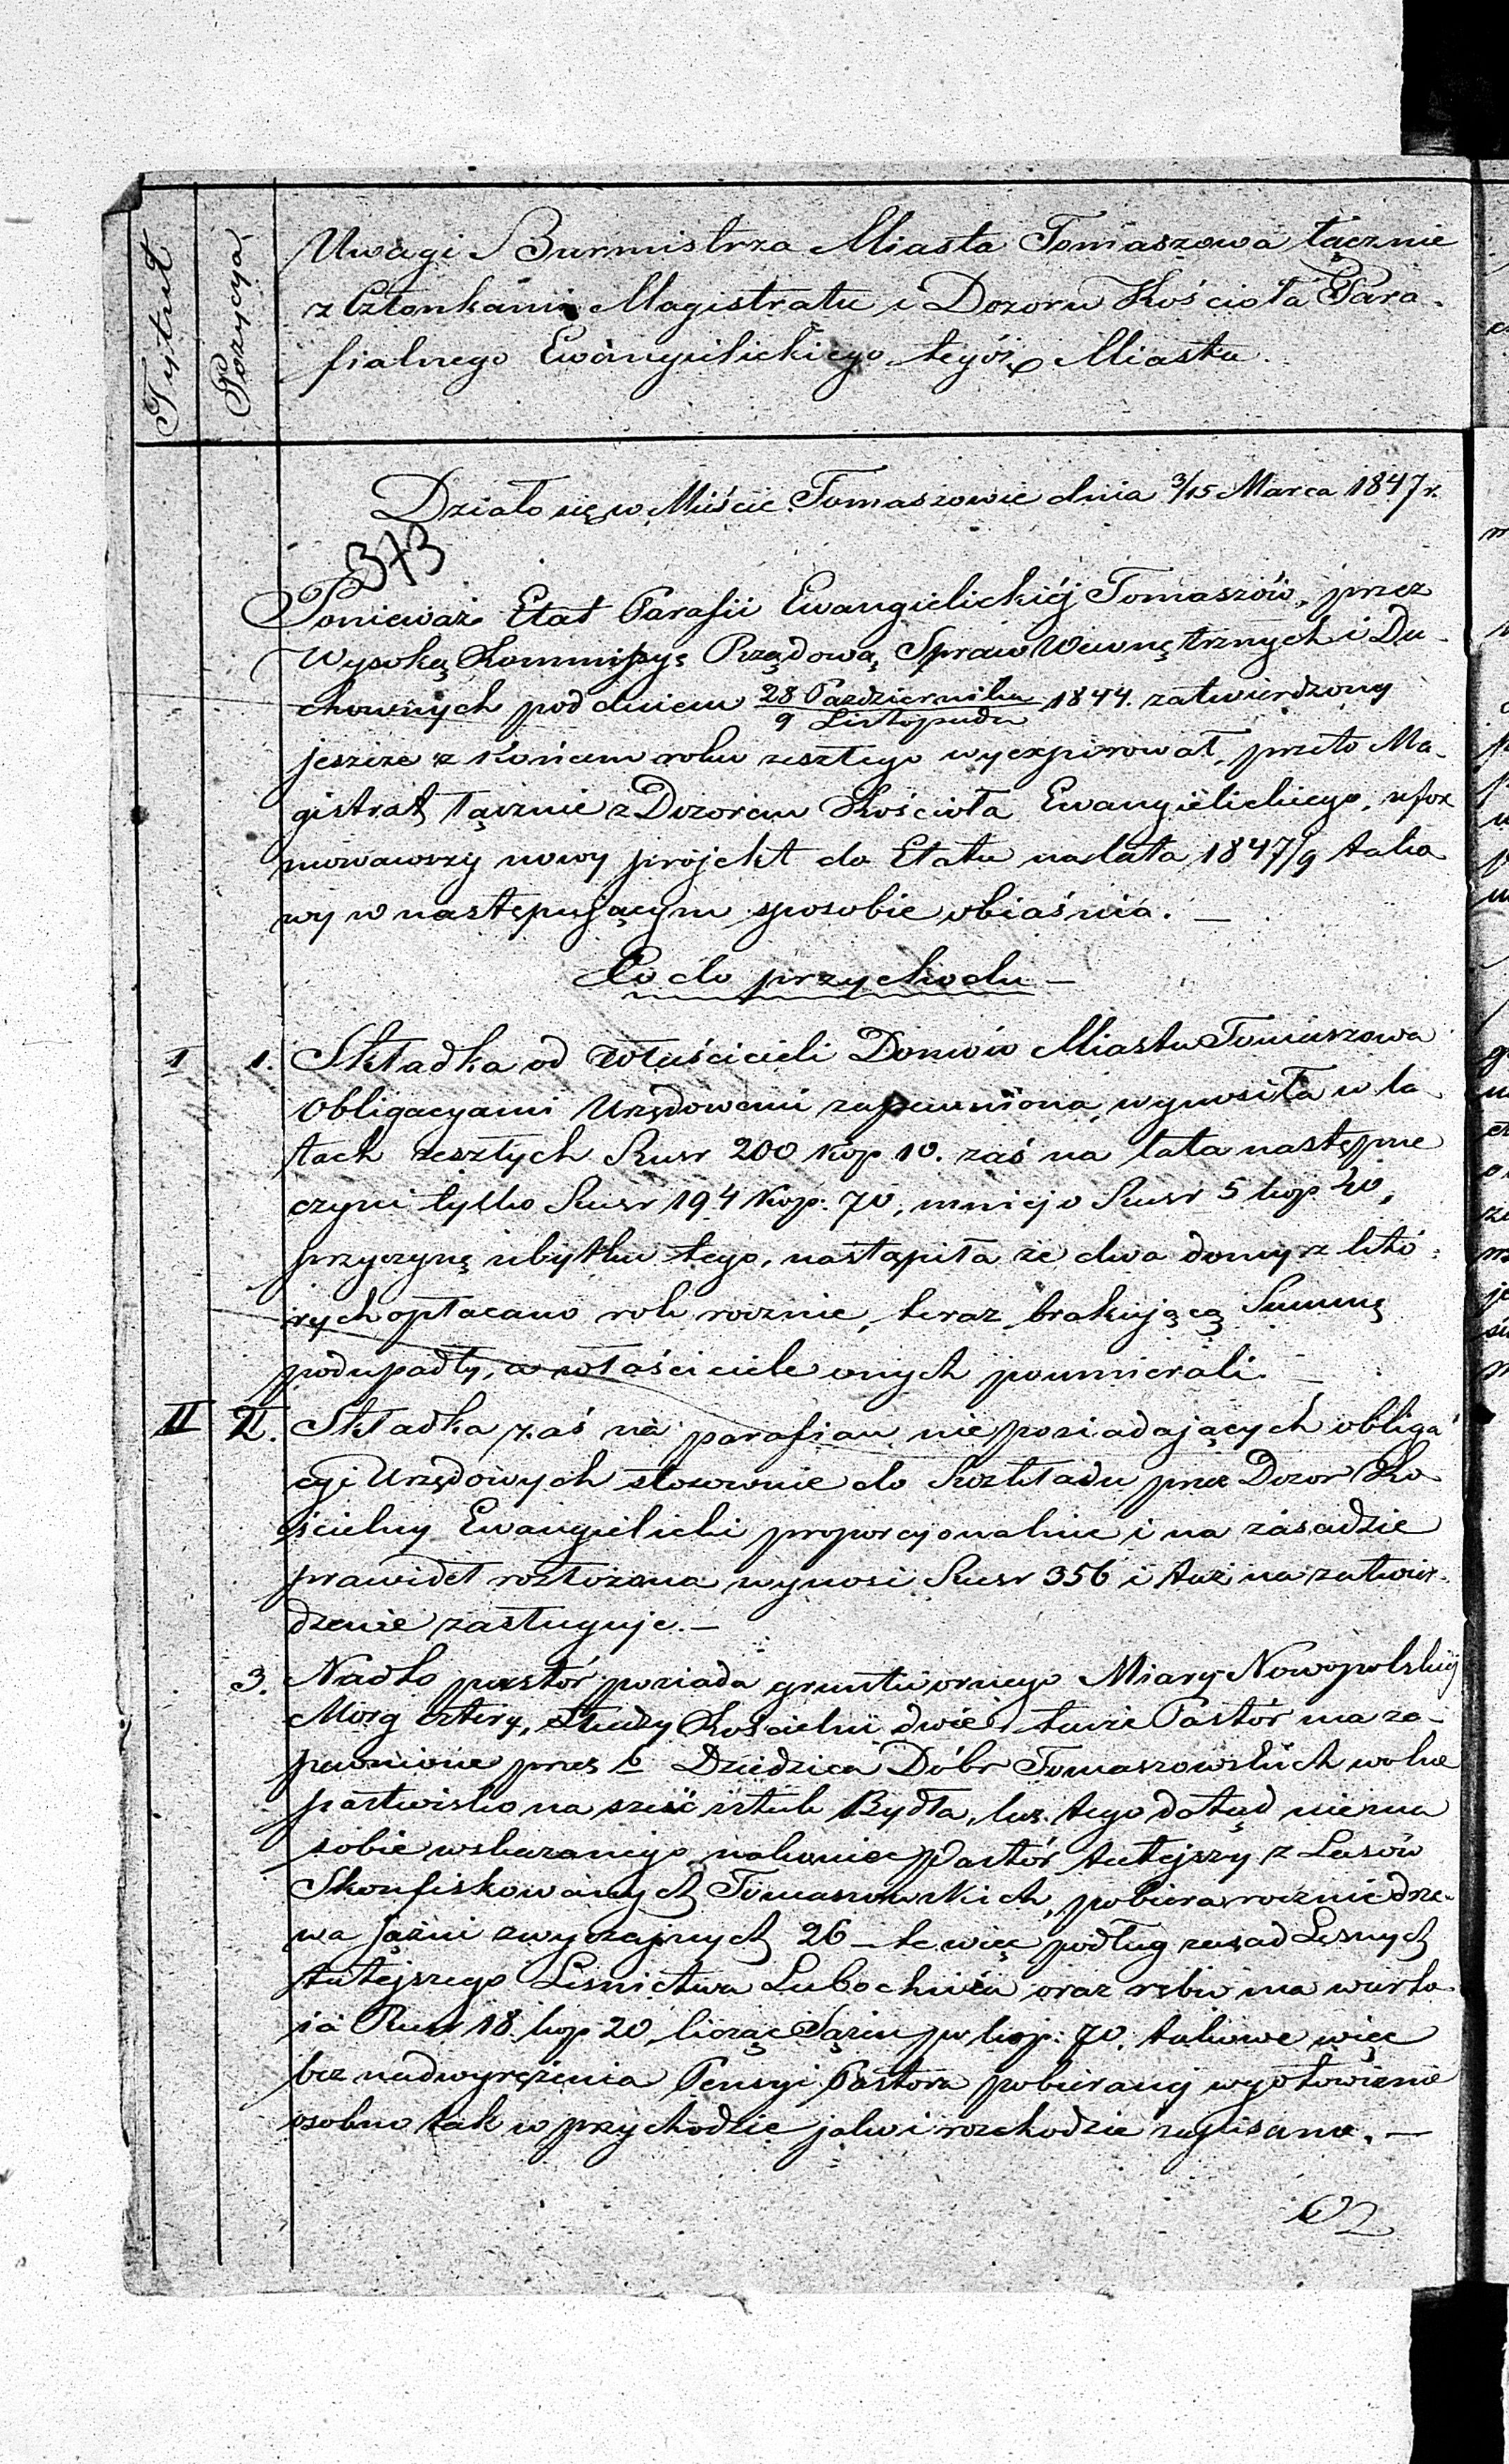 Tytuł
Pozycya
Uwagi Burmistrza Miasta Tomaszowa łącznie
z Członkami Magistratu i Dozoru Kościoła Para-
fialnego Ewangielickiego tegóż Miasta.
Działo się w Mieście Tomaszowie dnia 3/15 Marca 1847 r.
373
Ponieważ Etat Parafii Ewangielickiéj Tomaszów, przez
Wysoką Kommissyę Rządową Spraw Wewnętrznych i Du-
chownych pod dniem 28 Października / 9 Listopada 1844. zatwierdzony
jeszcze z końcem roku zeszłego wyexpirował, przeto Ma-
gistrat łącznie z Dozorem Kościoła Ewangielickiego, ufor
mowawszy nowy projekt do Etatu na lata 1847/9 tako
wy w następującym sposobie obiaśnia. —
Co do przychodu —
I 1. Składka od Właścicieli Domów Miasta Tomaszowa
Obligacyami Urzędowemi zapewniona, wynosiła w la
tach zeszłych Rusr 200 kop 10. zaś na lata następne
czyni tylko Rusr 194 Kop: 70, mniej o Rusr 5 kop 40,
przyczynę ubytku tego, nastąpiła że dwa domy z któ-
rych opłacano rok rocznie, teraz brakującą Summę
podupadły, a właściciele onych poumierali. —
II 2. Składka zaś na parafian nie posiadających obliga
cyi Urzędowych stosownie do Rozkładu prze Dozor Ko
ścielny Ewangielicki proporcyonalnie i na zasadzie
prawideł rozłożona wynosi Rusr 356 i taż na zatwier-
dzenie zasługuje. —
3. Nadto pastór posiada gruntu ornego Miary Nowopolskiej
Morg cztery, Kościelni dwie tudzie Pastór ma za-
pewnione przez Dziedzica Dóbr Tomaszowskich wolne
pastwisko na sześć sztuk Bydła, lecz tego dotąd niema
sobie wskazanego nakoniec Pastór tutejszy z Lasów
Skonfiskowanych Tomaszowskich, pobiera rocznie drze-
wa sążni zwyczajnych 26 — te więc podług zasad Lesnych
tutejszego Lesnictwa Lubochnia oraz robi ma warto
scia Rusr 18 kop 20 licząc Sążeń po kop: 70. takowe więc
bez nadwyrężenia Pensyi Pastora pobieranej wygotówienie
osobno tak w przychodzie jako i rozchodzie zapisano. —